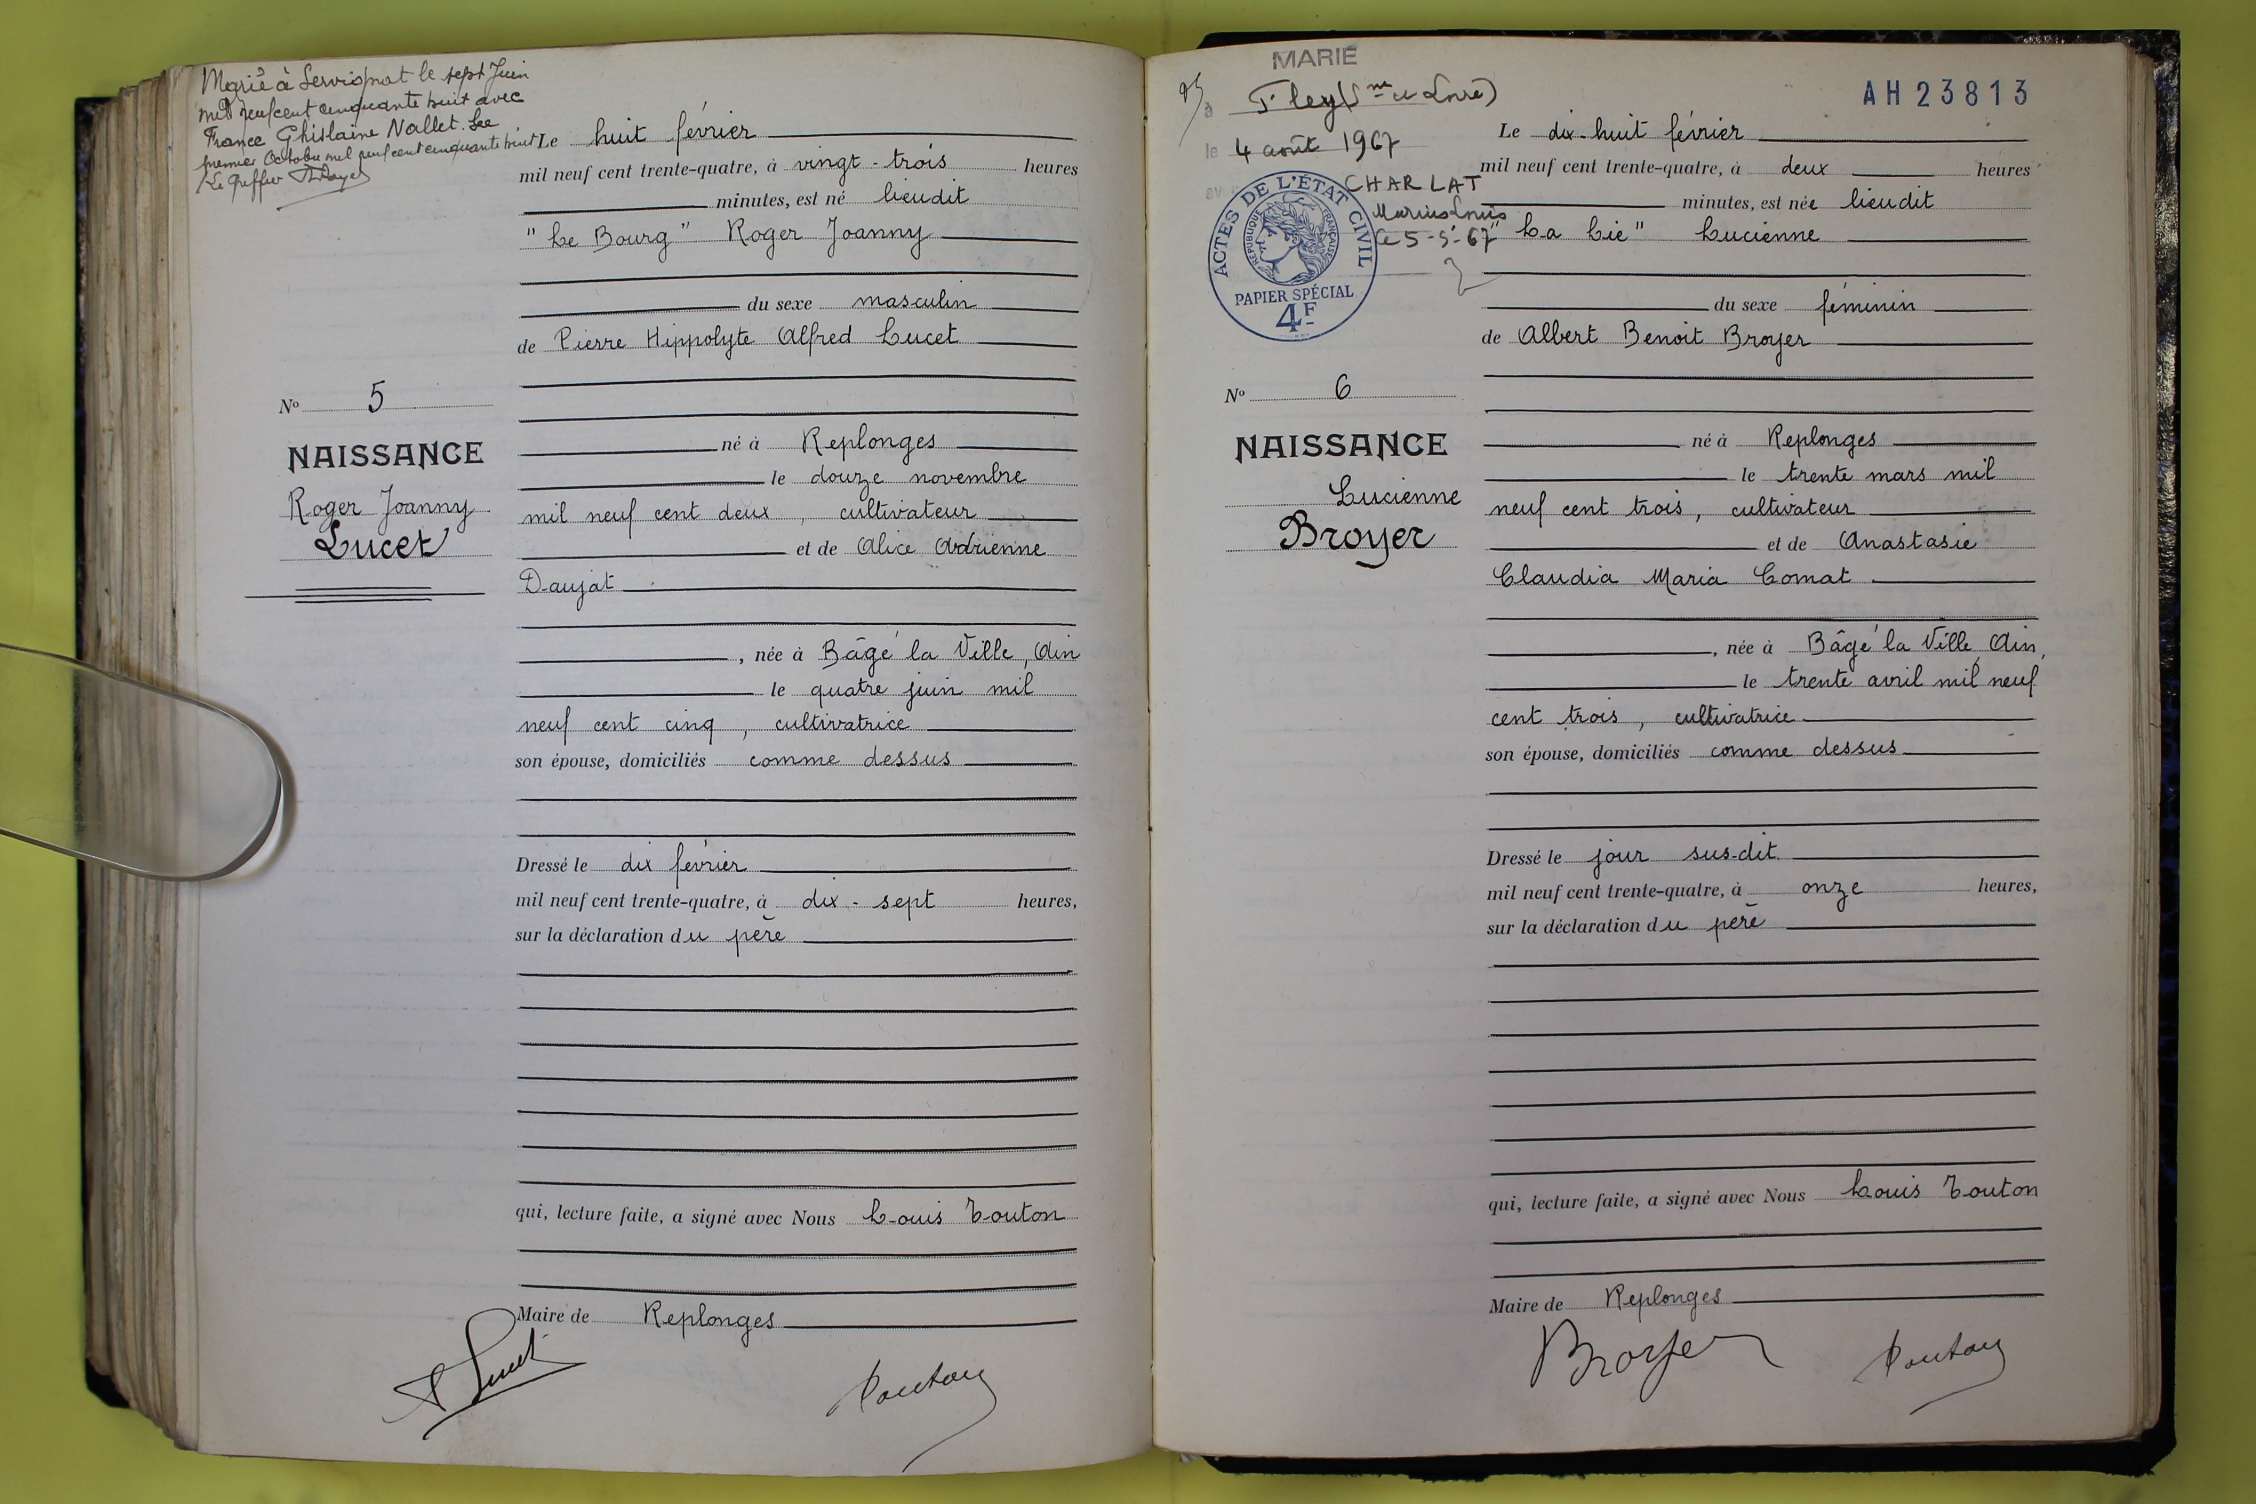 Marié à Servignat le sept Juin
mil neuf cent cinquante huit avec
France Ghislaine Nallet. Le
premier Octobre mil neuf cent cinquante huit
Le Greffier
Le huit février
mil neuf cent trente-quatre, à vingt-trois heures
minutes, est né lieudit
"Le Bourg" Roger Joanny
du sexe masculin
de Pierre Hippolyte Alfred Lucet
No 5
NAISSANCE
Roger Joanny
Lucet
né à Replonges
le douze novembre
mil neuf cent deux, cultivateur
et de Alice Adrienne
Daujat
, née à Bâgé la Ville, Ain
le quatre juin mil
neuf cent cinq, cultivatrice
son épouse, domiciliés comme dessus
Dressé le dix février
mil neuf cent trente-quatre, à dix-sept heures,
sur la déclaration du père
qui, lecture faite, a signé avec Nous Louis Touton
Maire de Replonges
Lucet
Touton
MARIE
à Fley (S ne et Loire)
le 4 août 1967
CHARLAT
Marius Louis
le 5-9-67
ACTES DE L'ÉTAT CIVIL
RÉPUBLIQUE FRANÇAISE
PAPIER SPÉCIAL
4F
AH 23813
Le dix-huit février
mil neuf cent trente-quatre, à deux heures
minutes, est née lieudit
"La Lie" Lucienne
du sexe féminin
de Albert Benoit Broyer
No 6
NAISSANCE
Lucienne
Broyer
né à Replonges
le trente mars mil
neuf cent trois, cultivateur
et de Anastasie
Claudia Maria Comat
, née à Bâgé la Ville, Ain,
le trente avril mil neuf
cent trois, cultivatrice
son épouse, domiciliés comme dessus
Dressé le jour sus-dit
mil neuf cent trente-quatre, à onze heures,
sur la déclaration du père
qui, lecture faite, a signé avec Nous Louis Touton
Maire de Replonges
Broyer
Touton